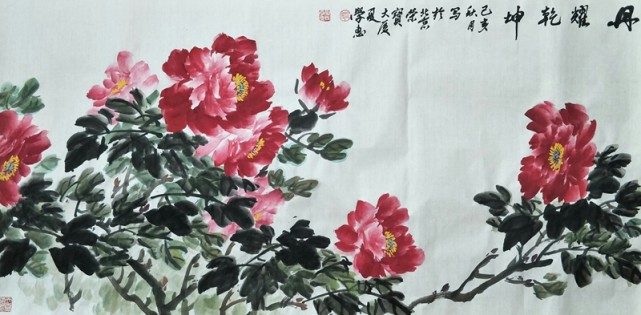 丹耀乾坤
己亥
秋月
写
於
北京
荣
寶
大厦
夏
學